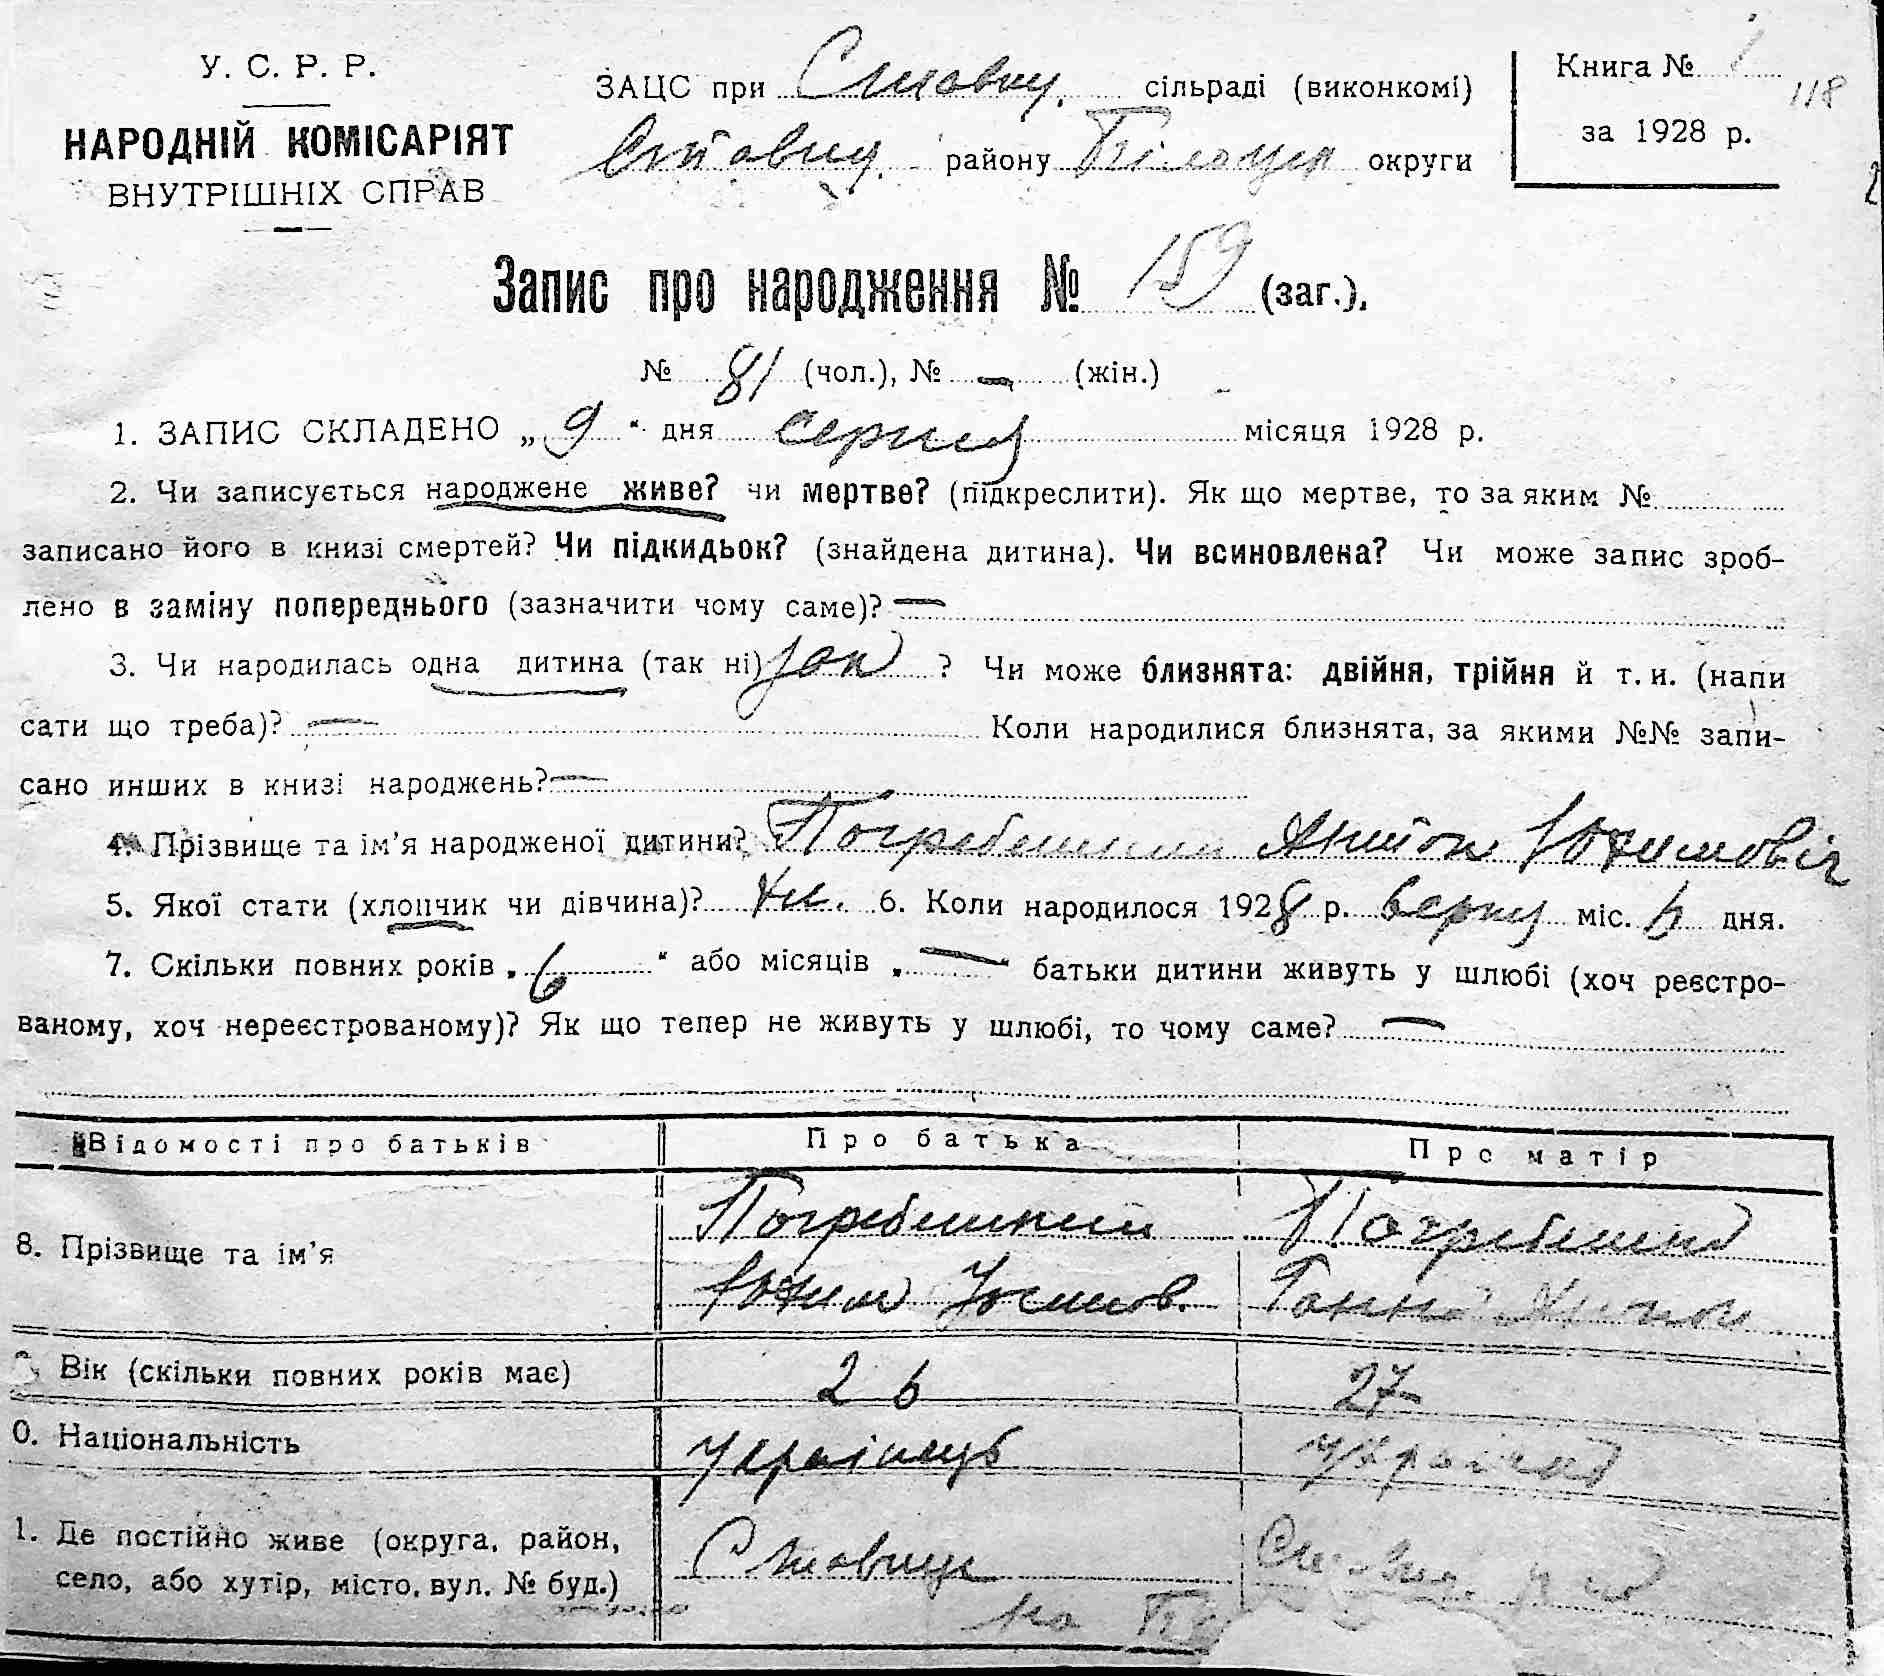 У. С. Р. Р.
НАРОДНІЙ КОМІСАРІЯТ
ВНУТРІШНІХ СПРАВ
ЗАЦС при Ставищ. сільраді (виконкомі)
Ставищ. району Білоцер округи
Книга № 1
118
за 1928 р.
Запис про народження № 159 (заг.),
№ 81 (чол.), № — (жін.)
1. ЗАПИС СКЛАДЕНО „ 9 “ дня серпня місяця 1928 р.
2. Чи записується народжене живе? чи мертве? (підкреслити). Як що мертве, то за яким №
записано його в книзі смертей? Чи підкидьок? (знайдена дитина). Чи всиновлена? Чи може запис зроб-
лено в заміну попереднього (зазначити чому саме)? —
3. Чи народилась одна дитина (так ні) ? Чи може близнята: двійня, трійня й т. и. (напи
сати що треба)? — Коли народилися близнята, за якими №№ запи-
сано инших в книзі народжень? —
4. Прізвище та ім’я народженої дитини? Погребиський Антон Юхимовіч
5. Якої стати (хлопчик чи дівчина)? 6. Коли народилося 1928 р. серпн міс. 6 дня.
7. Скільки повних років „ 6 “ або місяців „ — “ батьки дитини живуть у шлюбі (хоч реєстро-
ваному, хоч нереєстрованому)? Як що тепер не живуть у шлюбі, то чому саме? —
Відомості про батьків Про батька Про матір
8. Прізвище та ім’я Погребиський Погребиська
Юхим Ганна
Вік (скільки повних років має) 26 27
0. Національність українець українка
1. Де постійно живе (округа, район, Ставище
село, або хутір, місто, вул. № буд.)